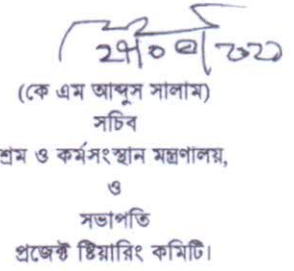 (কে এম আব্দুস সালাম)
সচিব
শ্রম ও কর্মসংস্থান মন্ত্রণালয়,
ও
সভাপতি
প্রজেক্ট ষ্টিয়ারিং কমিটি।